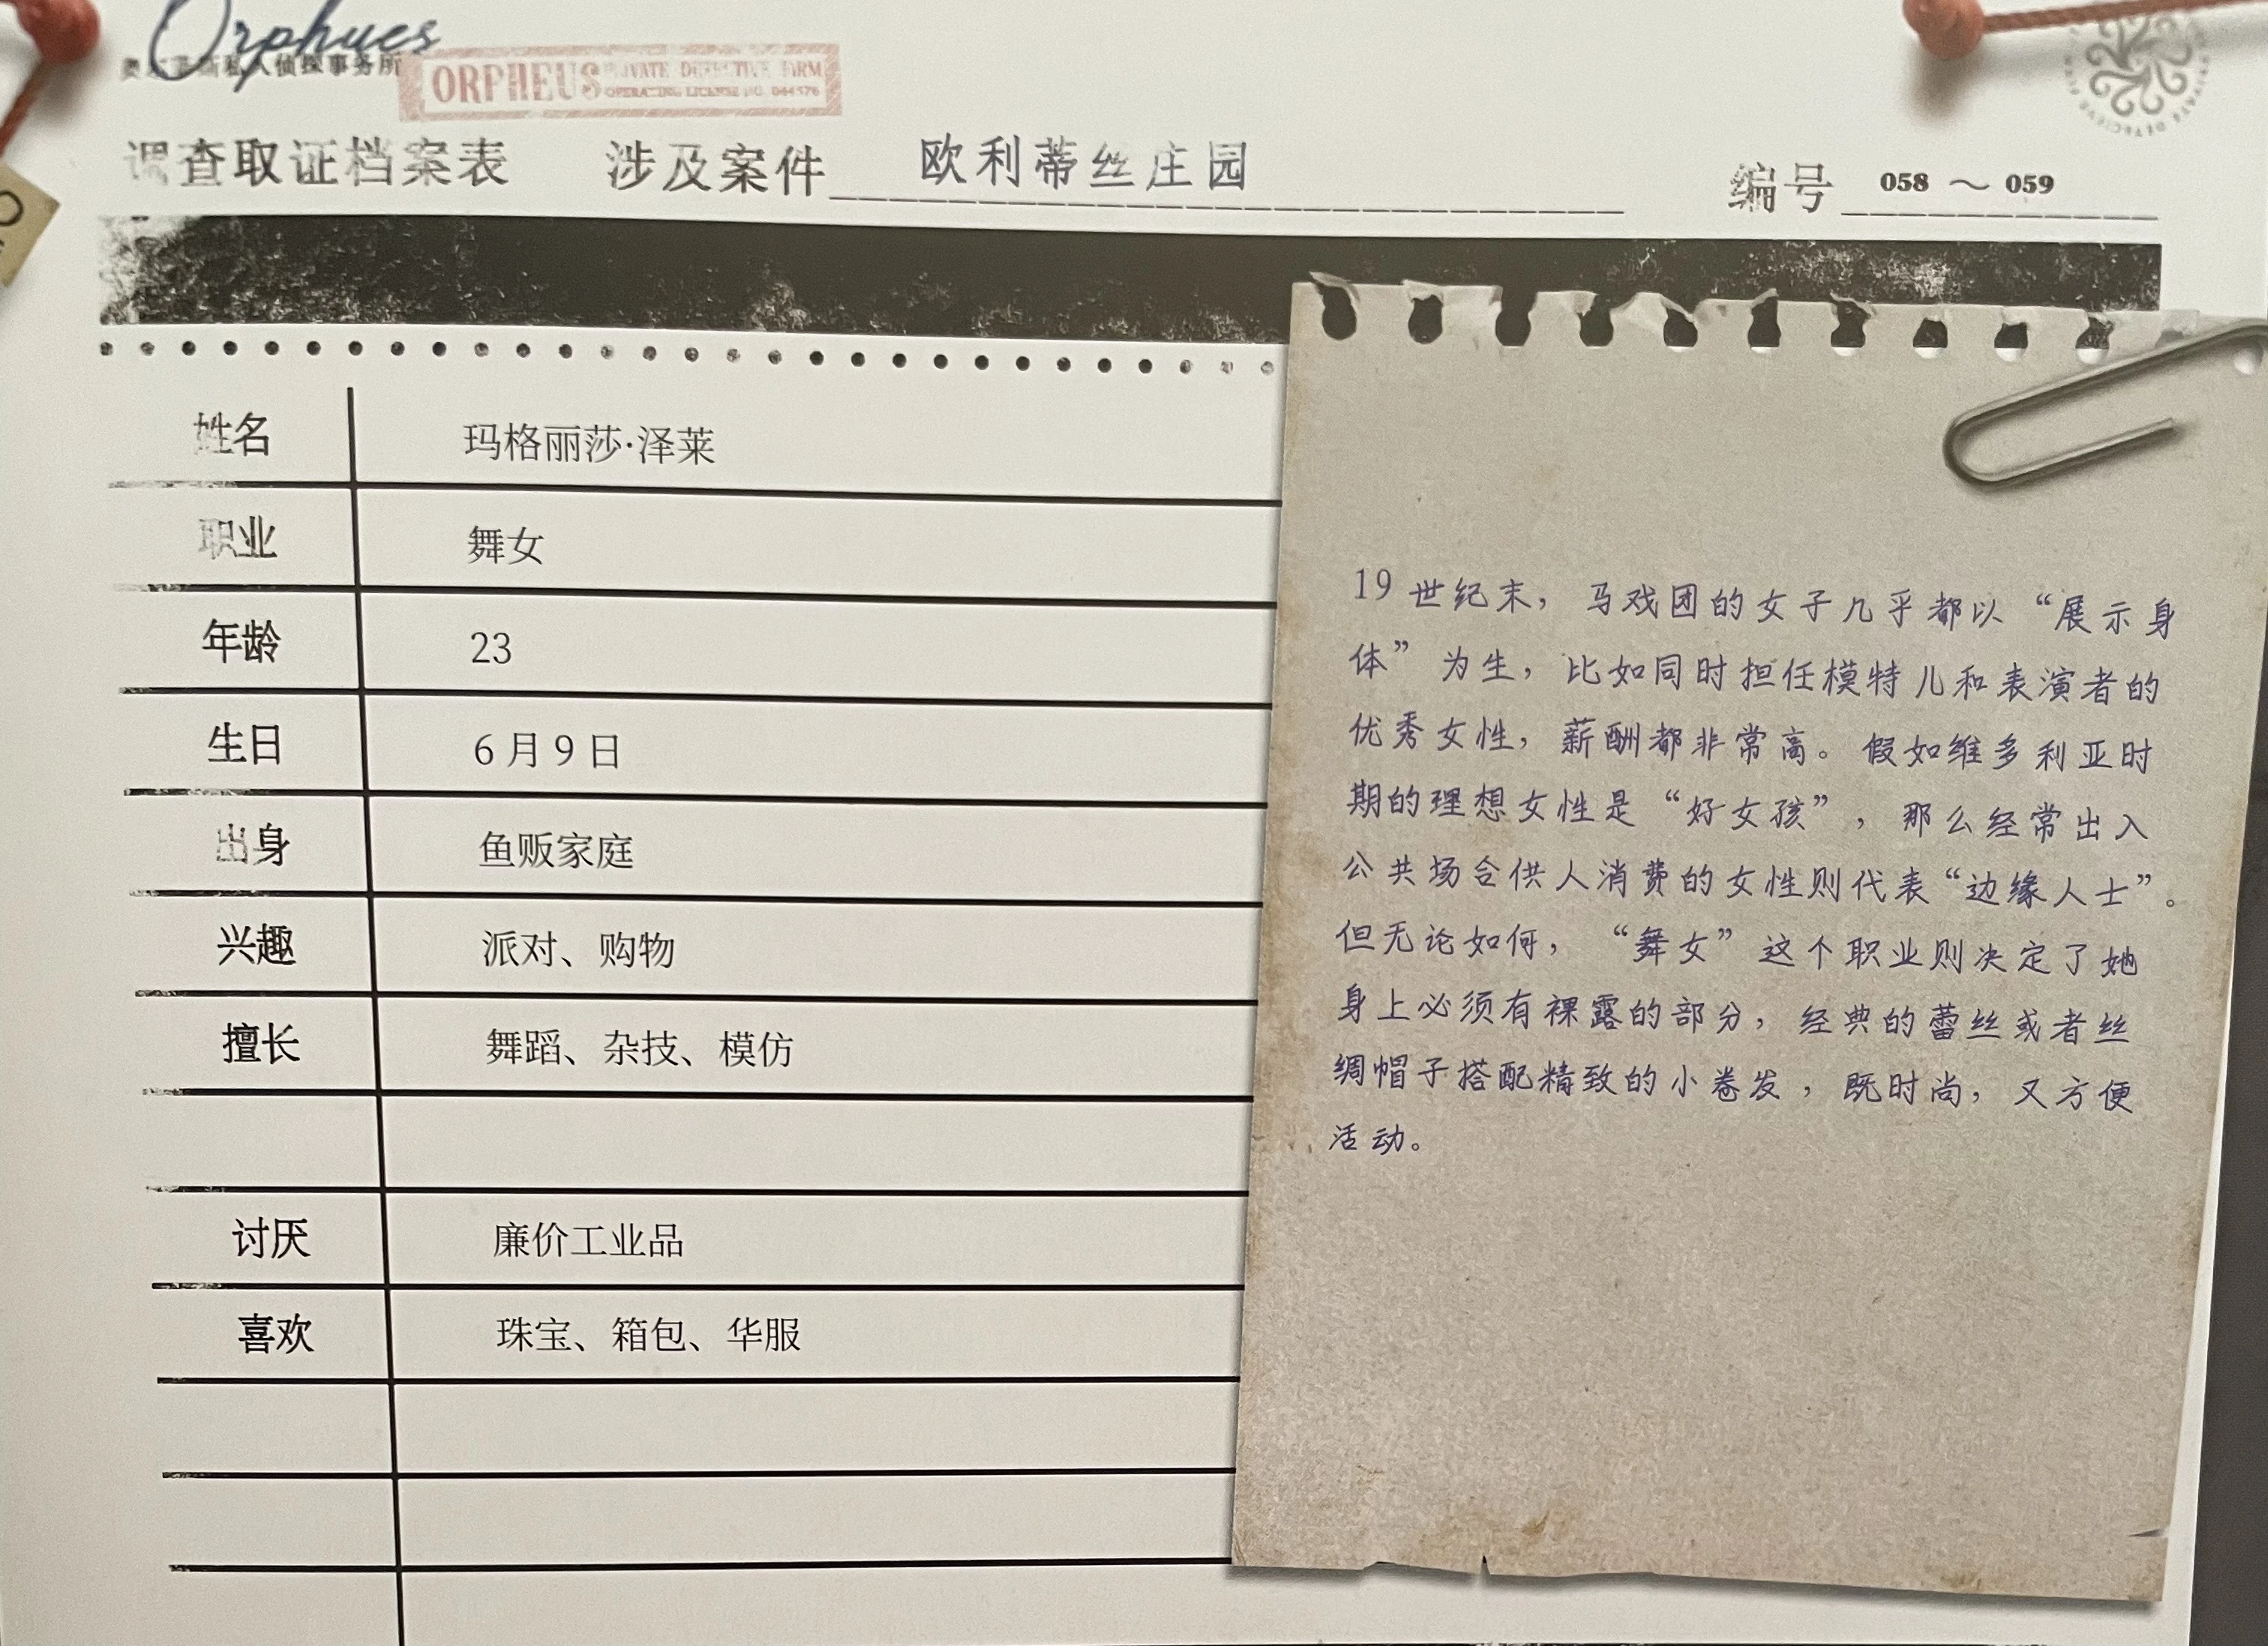 Orphues
私人侦探事务所
ORPHEUS PRIVATE DETECTIVE FIRM
OPERATING LICENSE NO. 044576
调查取证档案表 涉及案件 欧利蒂丝庄园 编号 058 ~ 059
姓名 玛格丽莎·泽莱
职业 舞女
年龄 23
生日 6 月 9 日
出身 鱼贩家庭
兴趣 派对、购物
擅长 舞蹈、杂技、模仿
讨厌 廉价工业品
喜欢 珠宝、箱包、华服
19 世纪末，马戏团的女子几乎都以“展示身
体”为生，比如同时担任模特儿和表演者的
优秀女性，薪酬都非常高。假如维多利亚时
期的理想女性是“好女孩”，那么经常出入
公共场合供人消费的女性则代表“边缘人士”。
但无论如何，“舞女”这个职业则决定了她
身上必须有裸露的部分，经典的蕾丝或者丝
绸帽子搭配精致的小卷发，既时尚，又方便
活动。